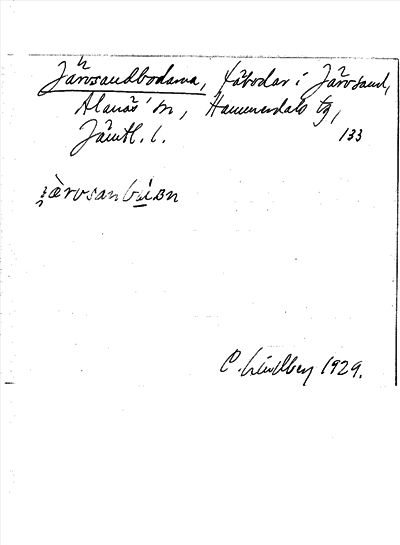 Järvsandbodarna, fäbodar i Järvsand,
Alanäs sn, Hammerdals tg,
Jämtl. l. 133
C. Lindberg 1929.